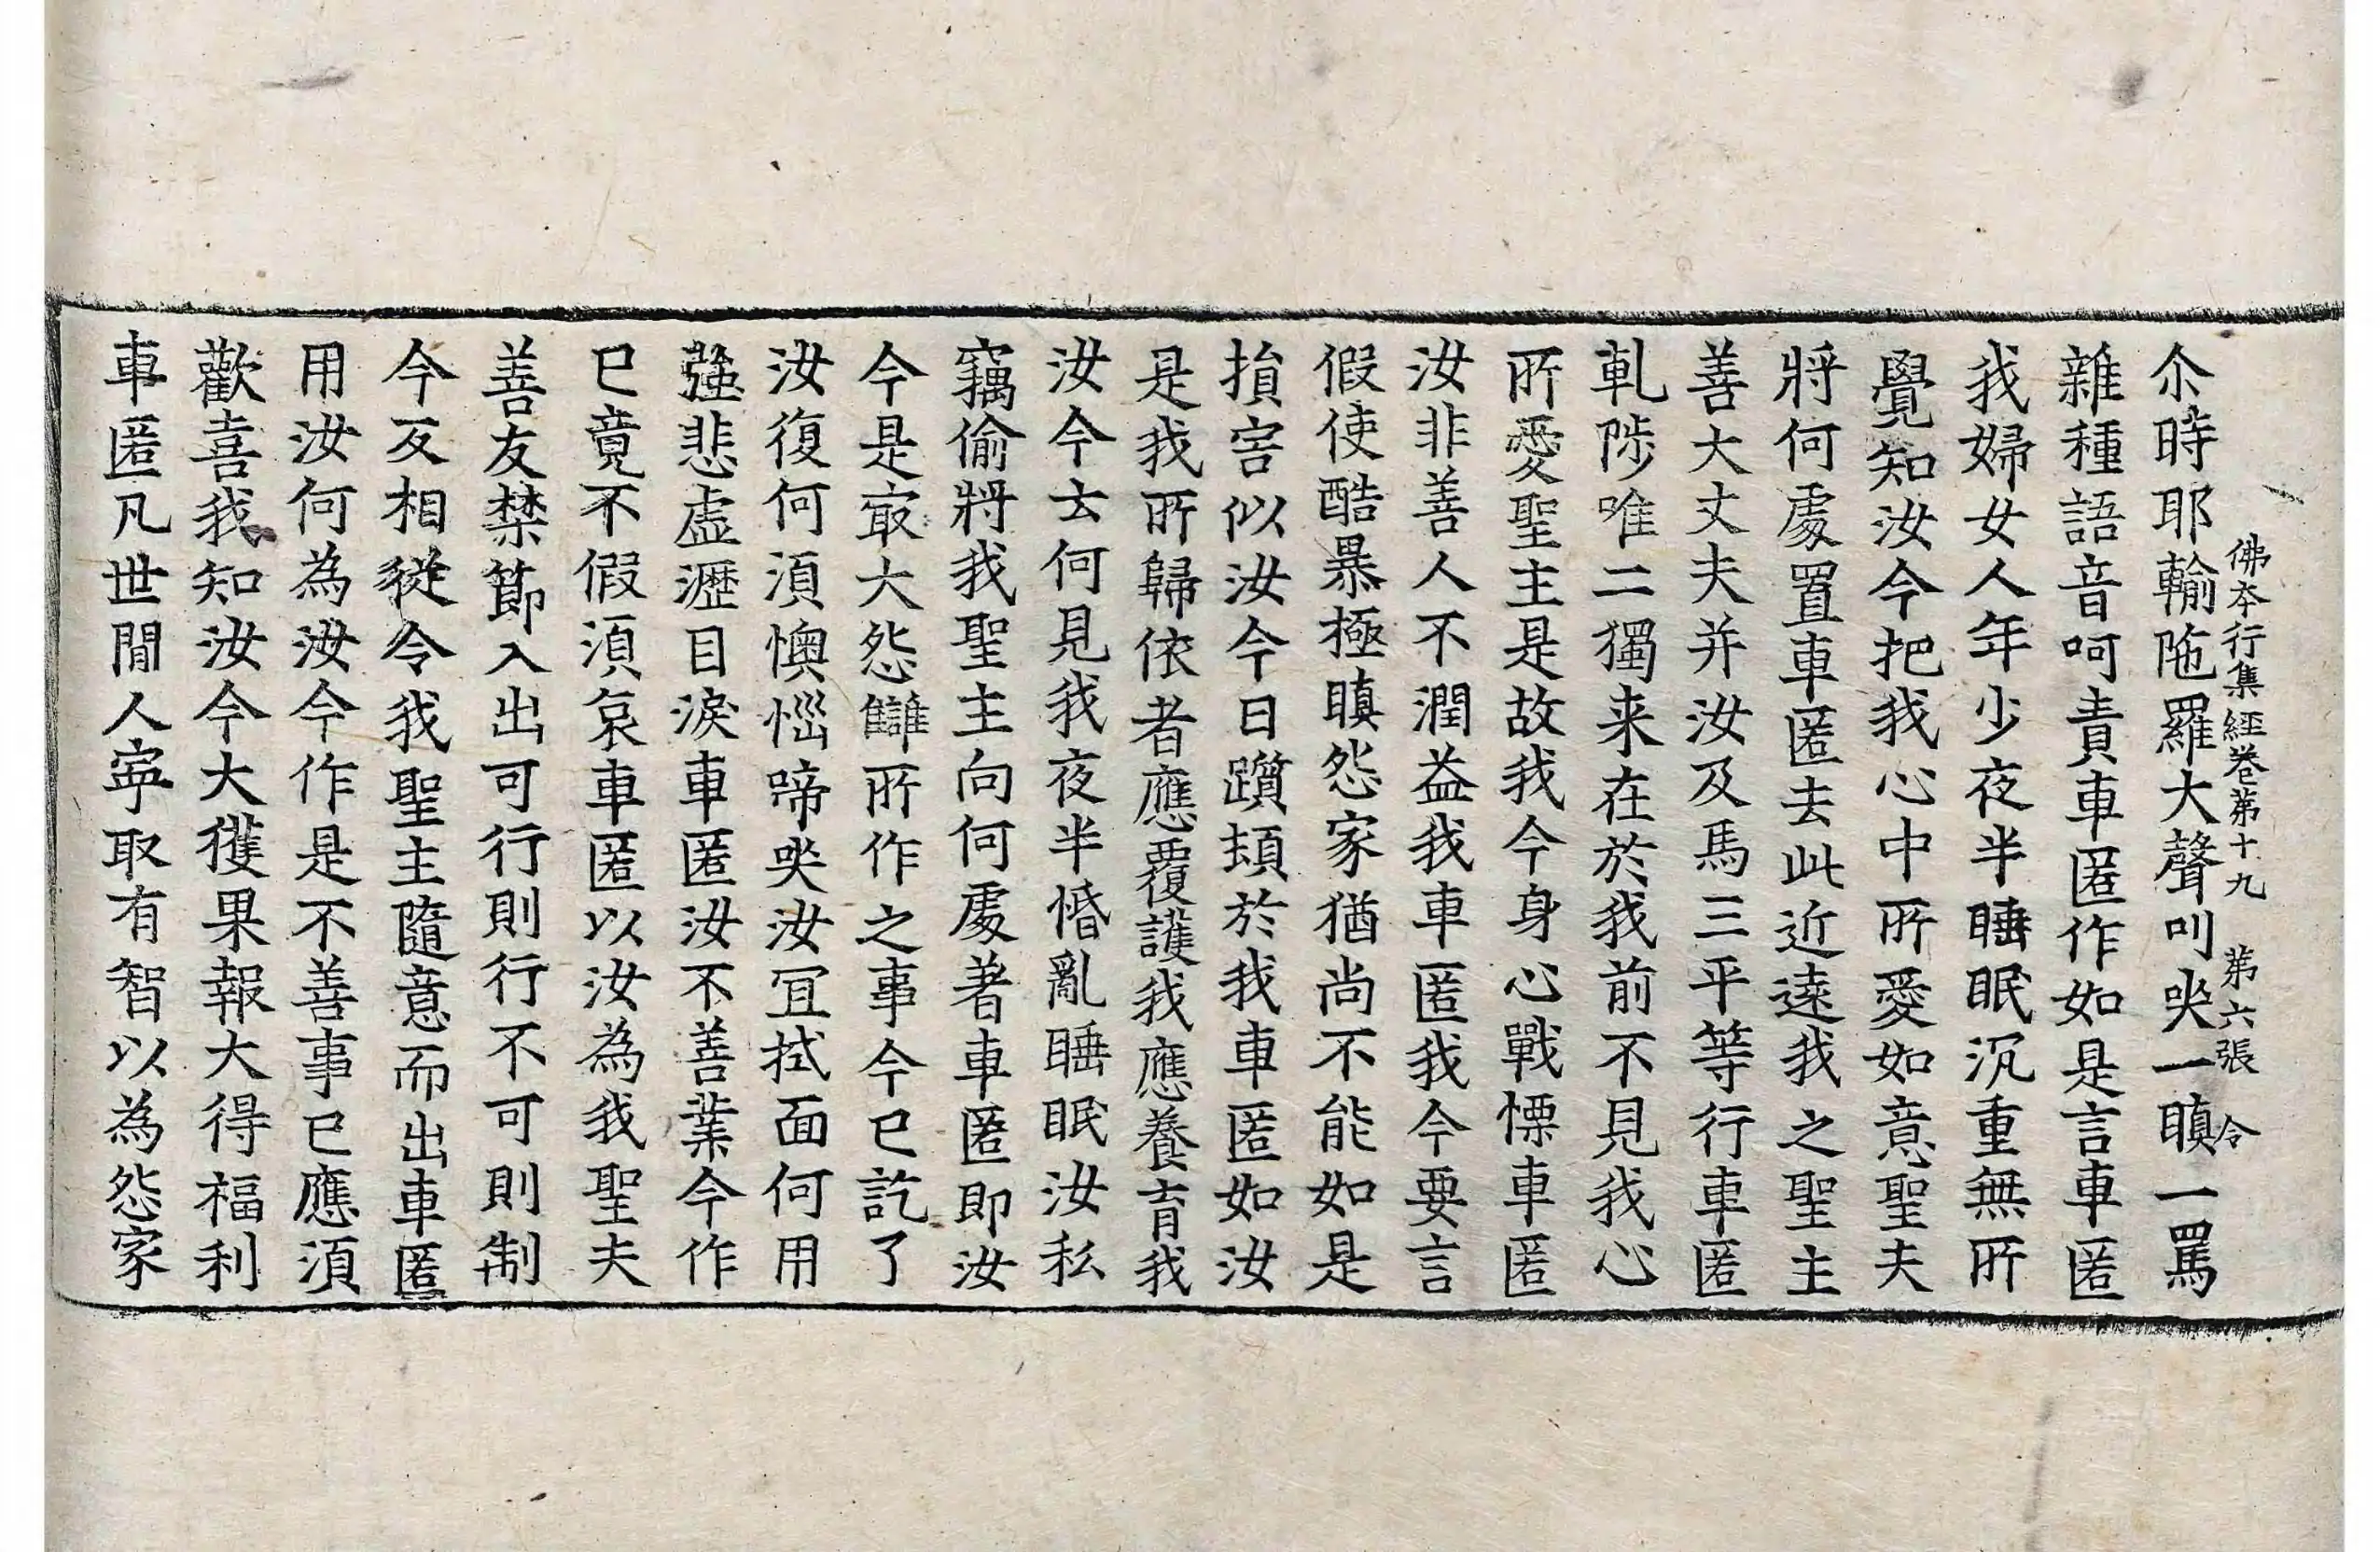 佛本行集經卷第十九 第六張 令
尒時耶輸陁羅大聲叫哭一瞋一罵
雜種語音呵責車匿作如是言車匿
我婦女人年少夜半睡眠沉重無所
覺知汝今把我心中所愛如意聖夫
將何處置車匿去此近遠我之聖主
善大丈夫并汝及馬三平等行車匿
軋陟唯二獨来在於我前不見我心
所愛聖主是故我今身心戰慄車匿
汝非善人不潤益我車匿我今要言
假使酷暴極瞋怨家猶尚不能如是
損害似汝今日躓頓於我車匿如汝
是我所歸依者應覆護我應養育我
汝今云何見我夜半惛亂睡眠汝私
竊偷將我聖主向何處著車匿即汝
今是㝡大怨讎所作之事今已訖了
汝復何湏懊惱啼哭汝冝拭面何用
強悲虛瀝目淚車匿汝不善業今作
已竟不假湏哀車匿以汝為我聖夫
善友禁節入出可行則行不可則制
今反相從令我聖主隨意而出車匿
用汝何為汝今作是不善事已應湏
歡喜我知汝今大獲果報大得福利
車匿凡世閒人寧取有智以為怨家